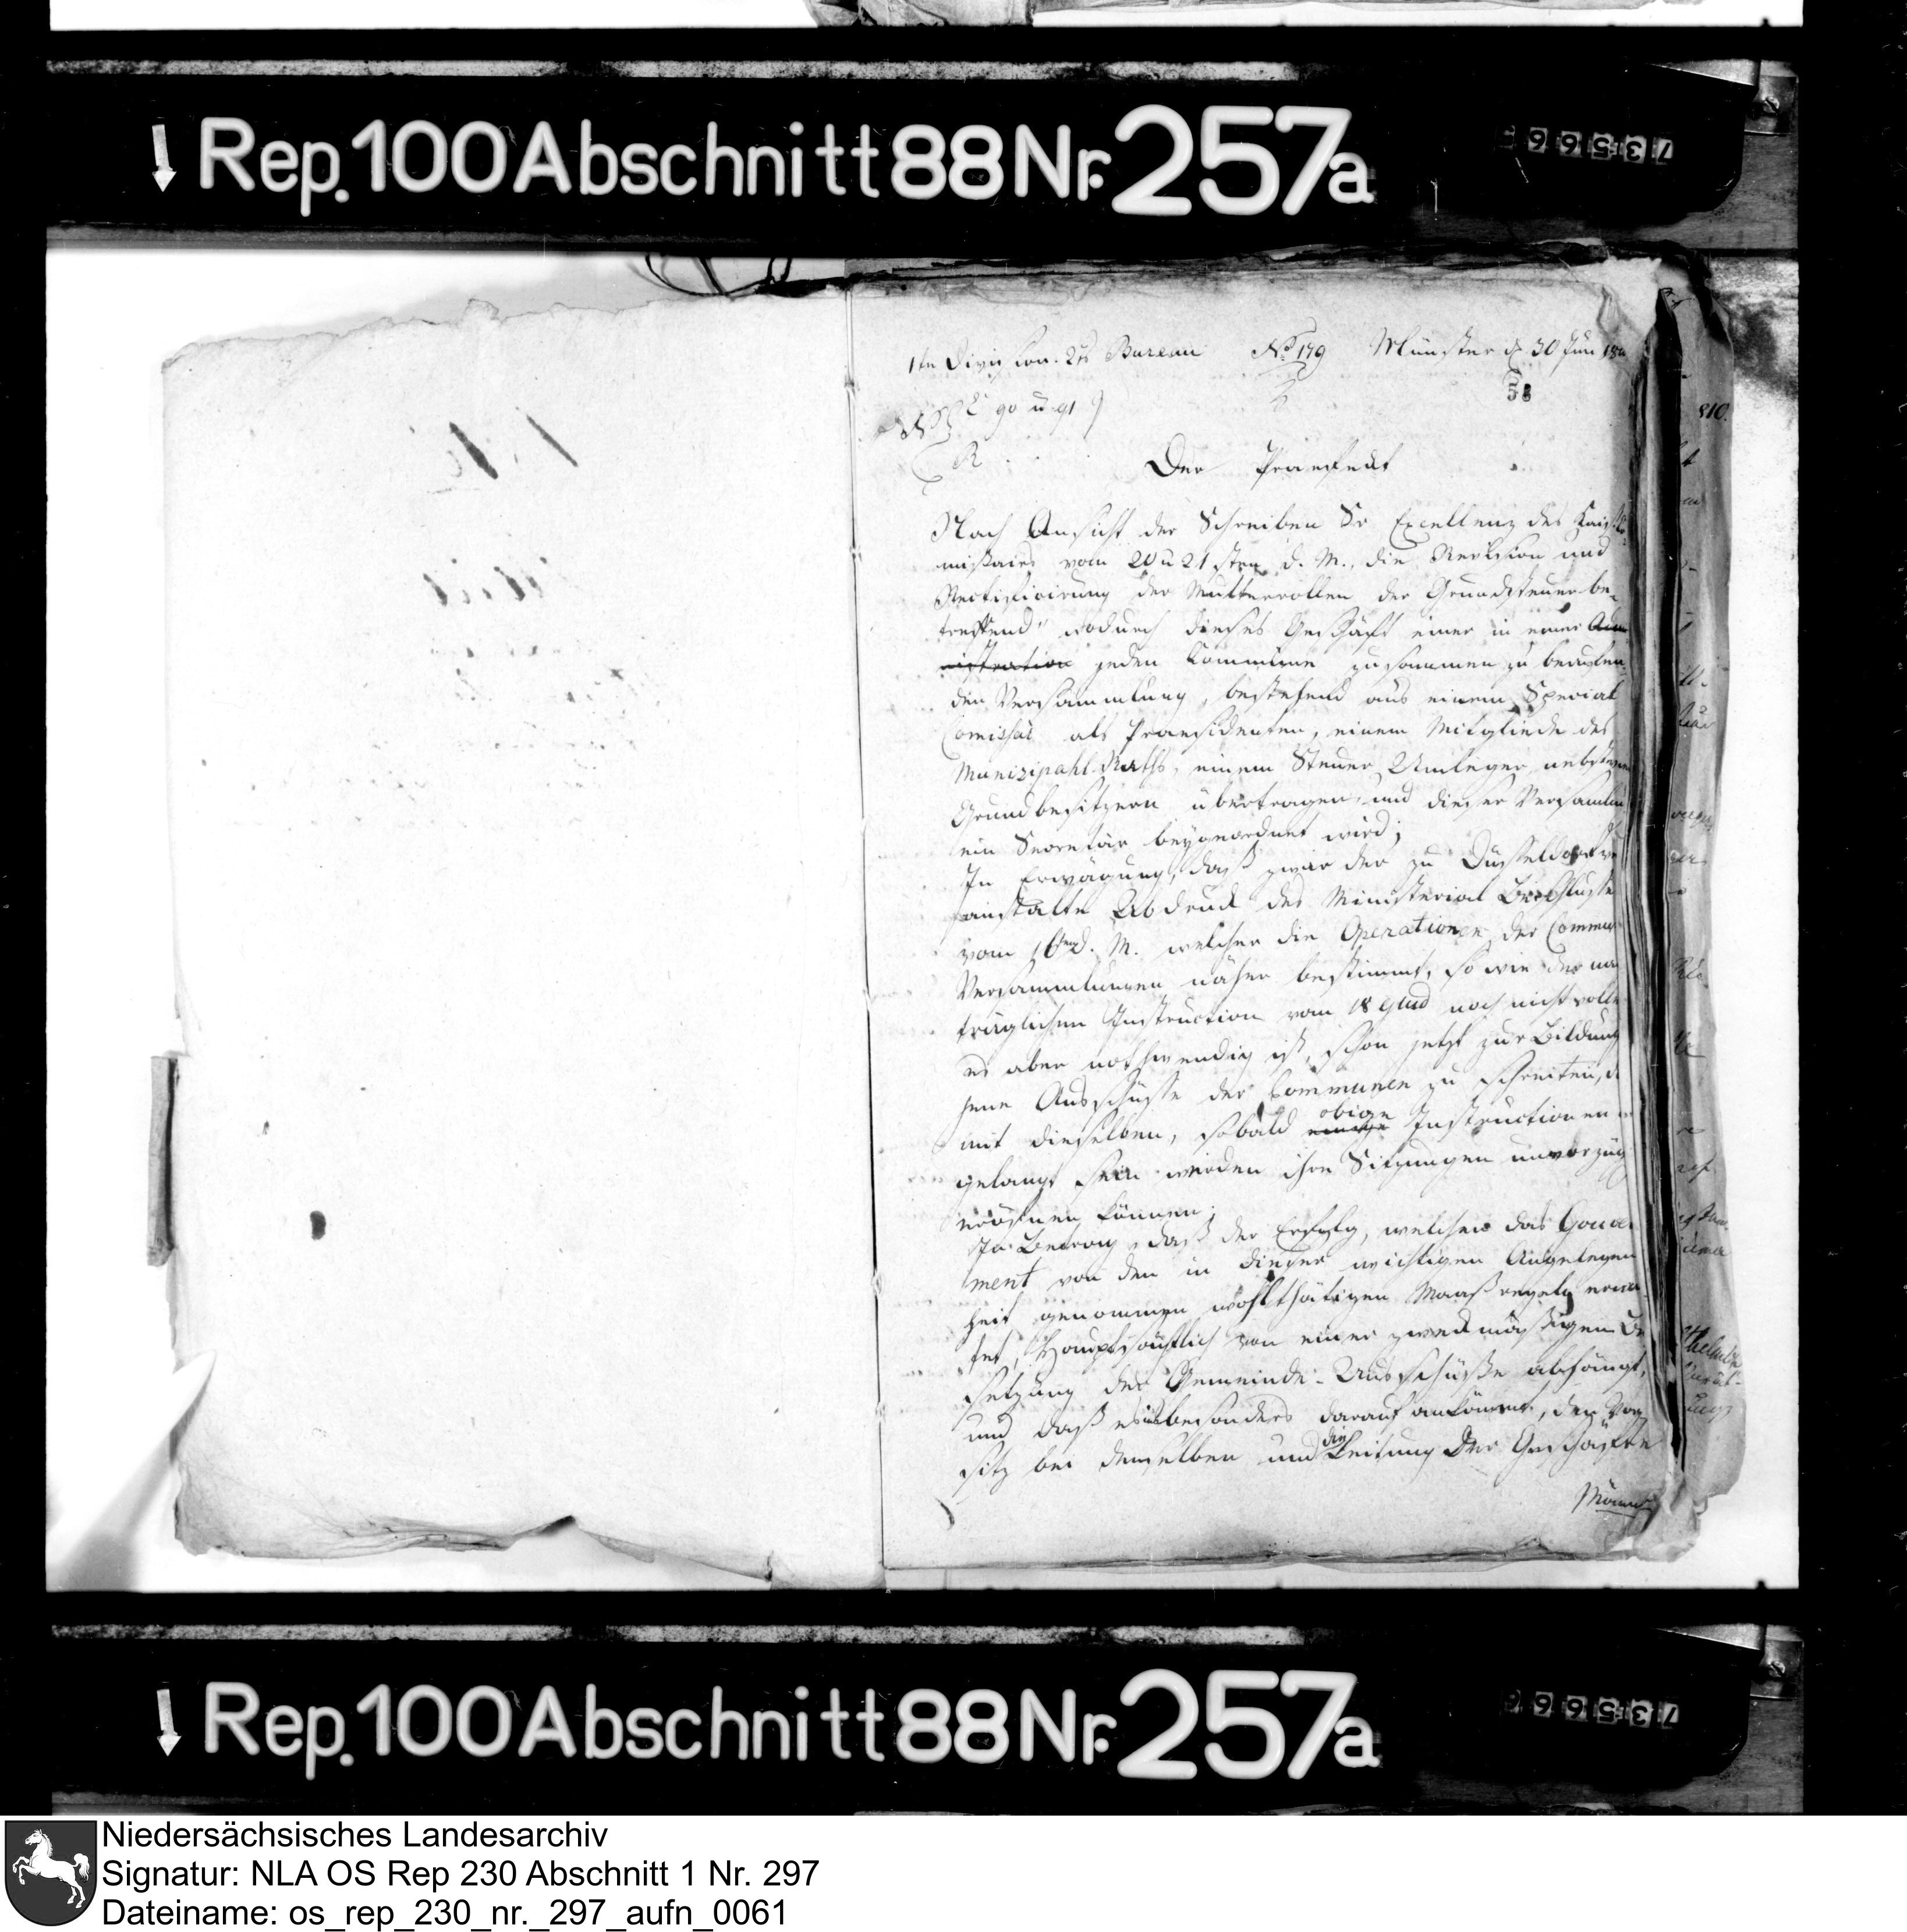 Rep. 100 Abschnitt 88 Nr. 257a
735666
1te Division 2tes Bureau No 179 Münster d 30 Jun
58
90 u 91
R
Der Praefekt
Nach Ansicht der Schreiben Sr Excellenz des
missairs vom 20 u 21 sten d. M., die Revision und
Rectificirung der Mutterrollen der Grundsteuer be-
treffend wodurch dieses Geschäft einer in einer
nistration jeden Commüne zusammen zu berufen
den Versammlung, bestehend aus einem Special
Comissar als Praesidenten, einem Mitgliede des
Munizipahl-Raths, einem Steuer Umleger nebst
Grundbesitzern übertragen und dieser Versamlu
ein Secretär beygeordnet wird;
In Erwägung, daß zwar der zu Düsseldorf ver
anstalte Abdruck des Ministerial Beschlusse
vom 16ten d. M. welcher die Operationen der Commu
Versammlungen näher bestimmt, so wie der na
träglichen Instruction vom 18 noch nicht volle
es aber nothwendig ist, schon jetzt zur Bildung
jene Ausschüsse der Communen zu schreiten, d
mit dieselben, sobald obige Instructionen
gelangt sein werden ihre Sitzungen unverzüg
eröfnen können;
In Betracht daß der Erfolg, welchen das Gouver
ment von den in dieser wichtigen Angelegen
heit genommen wohlthätigen Maaßregeln erwar
tet, Hauptsächlich von einer zweckmäßigen Be
setzung der Gemeinde-Ausschüße abhängt,
und daß es insbesonders darauf ankömmt, den Vor
sitz bei denselben und die Leitung der Geschäfte
Männer
810.
Rep. 100 Abschnitt 88 Nr. 257a
735666
Niedersächsisches Landesarchiv
Signatur: NLA OS Rep 230 Abschnitt 1 Nr. 297
Dateiname: os_rep_230_nr._297_aufn_0061